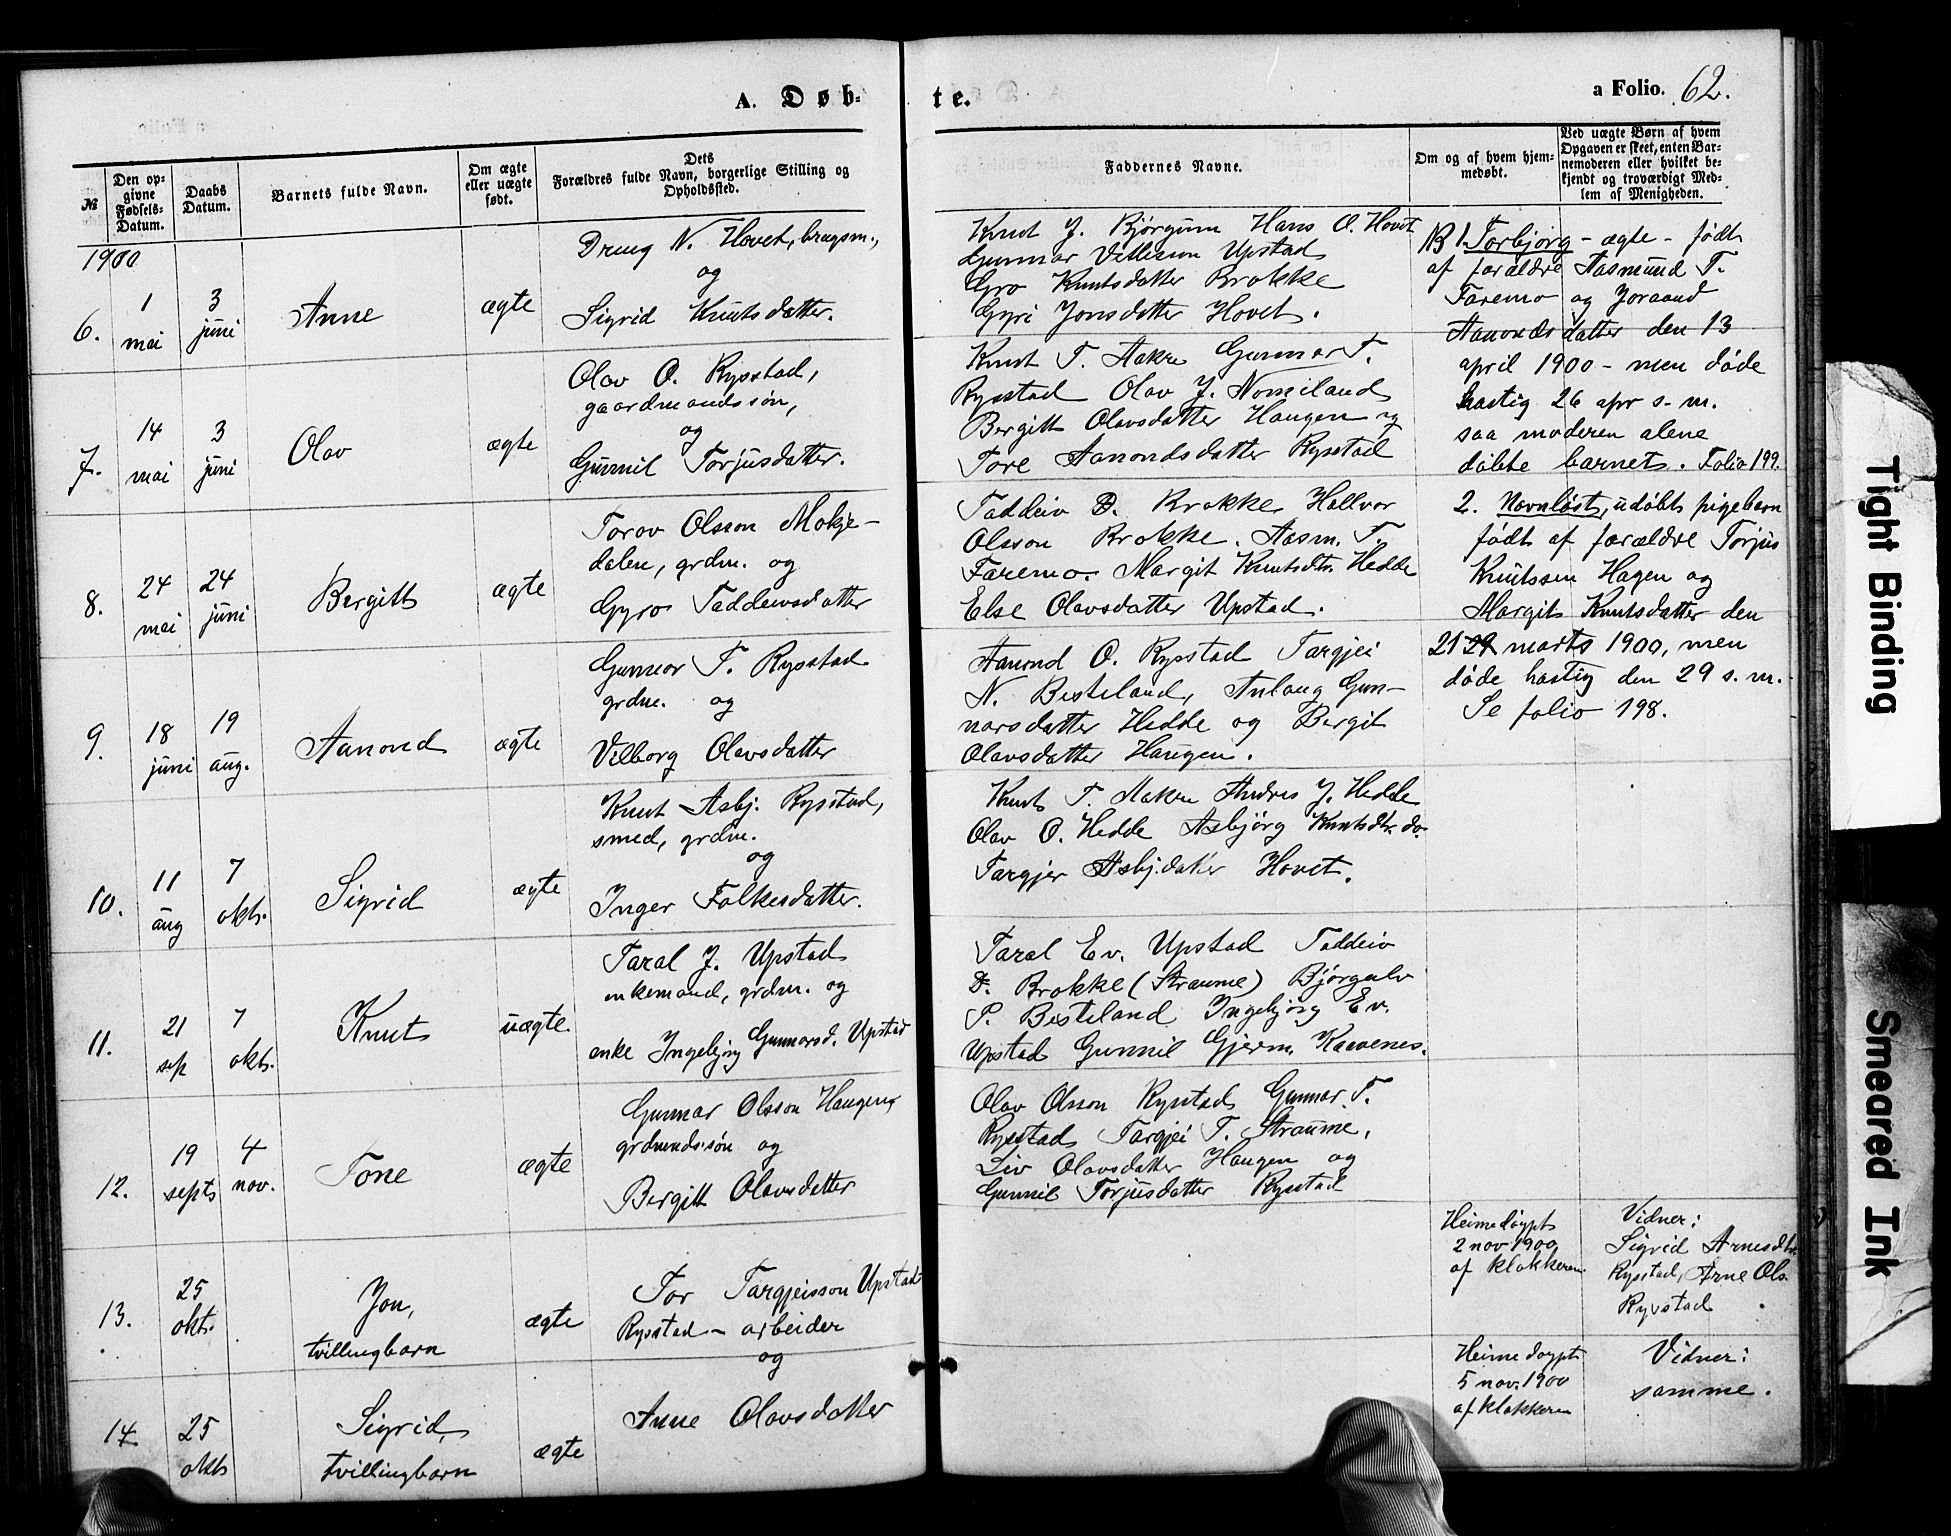 A. Døb-
te.
a Folio. 62.
№
Den op-
givne
Fødsels-
Datum.
Daabs
Datum.
Barnets fulde Navn.
Om ægte
eller uægte
født.
Dets
Forældres fulde Navn, borgerlige Stilling og
Opholdssted.
Faddernes Navne.
Om og af hvem hjem-
medøbt.
Ved uægte Børn af hvem
Opgaven er skeet, enten Bar-
nemoderen eller hvilket be-
kjendt og troværdigt Med-
lem af Menigheden.
1900
6.
1
mai
3
juni
Anne
ægte
Dreug N. Hovet, brugsm.,
og
Sigrid Knutsdatter.
Knut J. Bjørgum Hans O. Hovet
Gunnar Vetleson Upstad
Gro Knutsdatter Brokke
Gyri Jonsdatter Hovet.
7.
14
mai
3
juni
Olav
ægte
Olav O. Rysstad,
gaardmandssøn,
og
Gunnil Torjusdatter.
Knut T. Aakre Gunnar T.
Rysstad Olav J. Nomeland
Bergitt Olavsdatter Haugen og
Tore Aanondsdatter Rysstad
8.
24
mai
24
juni
Bergitt
ægte
Torov Olsson Mokje-
dalen, grdm. og
Gyro Taddeivsdatter
Taddeiv D. Brokke Hallvor
Olsson Brokke. Aasm. T.
Faremo. Margit Knutsdtr. Hedde
Else Olavsdatter Upstad.
9.
18
juni
19
aug.
Aanond
ægte
Gunnar T. Rysstad
grdm. og
Vilborg Olavsdatter
Aanond O. Rysstad Targjei
N. Besteland, Anlaug Gun-
narsdatter Hedde og Bergit
Olavsdatter Haugen.
10.
11
aug
7
okt.
Sigrid
ægte
Knut Asbj. Rysstad,
smed, grdm.
og
Inger Folkesdatter.
Knut T. Aakre Andres J. Hedde
Olav O. Hedde Asbjörg Knutsdtr. do.
Targjer Asbj.datter Hovet.
11.
21
sep
7
okt.
Knut
uægte.
Taral J. Upstad
enkemand, grdm. og
enke Ingebjörg Gunnarsd. Upstad
Taral Ev. Upstad Taddeiv
D. Brokke (Straume) Bjørgulv
P. Besteland Ingebjörg Ev.
Upstad Gunnil Gjerm. Kavenes.
12.
19
sept
4
nov.
Tone
ægte
Gunnar Olsson Haugen,
grdmndssøn og
Bergitt Olavsdatter
Olav Olsson Rysstad Gunnar T.
Rysstad Targjei T. Straume,
Liv Olavsdatter Haugen og
Gunnil Torjusdatter Rysstad
13.
25
okt.
Jon,
tvillingbarn
ægte
Tor Targjeisson Upstad
Rysstad – arbeider
og
Heimedöypt
2 nov 1900
af klokkeren
Vidner:
Sigrid Arnesdtr.
Rysstad, Arne Ols.
Rysstad.
14
25
okt
Sigrid,
tvillingbarn
ægte
Anne Olavsdatter
Heimedøypt
5 nov. 1900
af klokkeren
Vidner:
samme.
NB 1. Torbjørg – ægte – født
af forældre Aasmund T.
Faremo og Joraand
Aanondsdatter den 13
april 1900 – men døde
hastig 26 apr s. m.
saa moderen alene
døbte barnet. Folio 199.
2. Navnløst, udøbt pigebarn
født af forældre Torjus
Knutssen Hagen og
Margit Knutsdatter den
21 29 marts 1900, men
døde hastig den 29 s. m.
Se folio 198.
Tight Binding
Smeared Ink